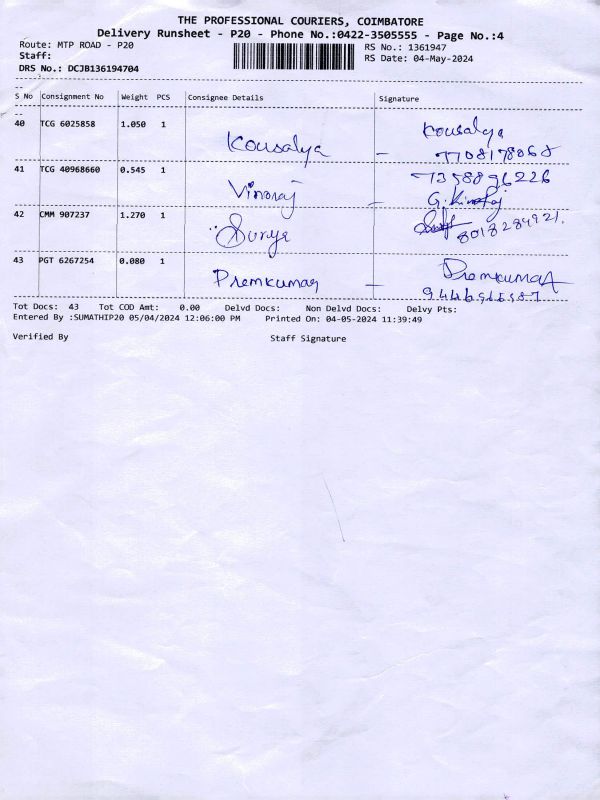 THE PROFESSIONAL COURIERS, COIMBATORE
Delivery Runsheet - P20 - Phone No.:0422-3505555 - Page No.:4
Route: MTP ROAD - P20 RS No.: 1361947
Staff: RS Date: 04-May-2024
DRS No.: DCJB136194704
S No Consignment No Weight PCS Consignee Details Signature
40 TCG 6025858 1.050 1 Kousalya - Kousalya
7708178068
41 TCG 40968660 0.545 1 Vinoraj - 7358896226
42 CMM 907237 1.270 1 Surya 8018284921.
43 PGT 6267254 0.080 1 Premkumar - Premkumar
Tot Docs: 43 Tot COD Amt: 0.00 Delvd Docs: Non Delvd Docs: Delvy Pts:
Entered By :SUMATHIP20 05/04/2024 12:06:00 PM Printed On: 04-05-2024 11:39:49
Verified By Staff Signature